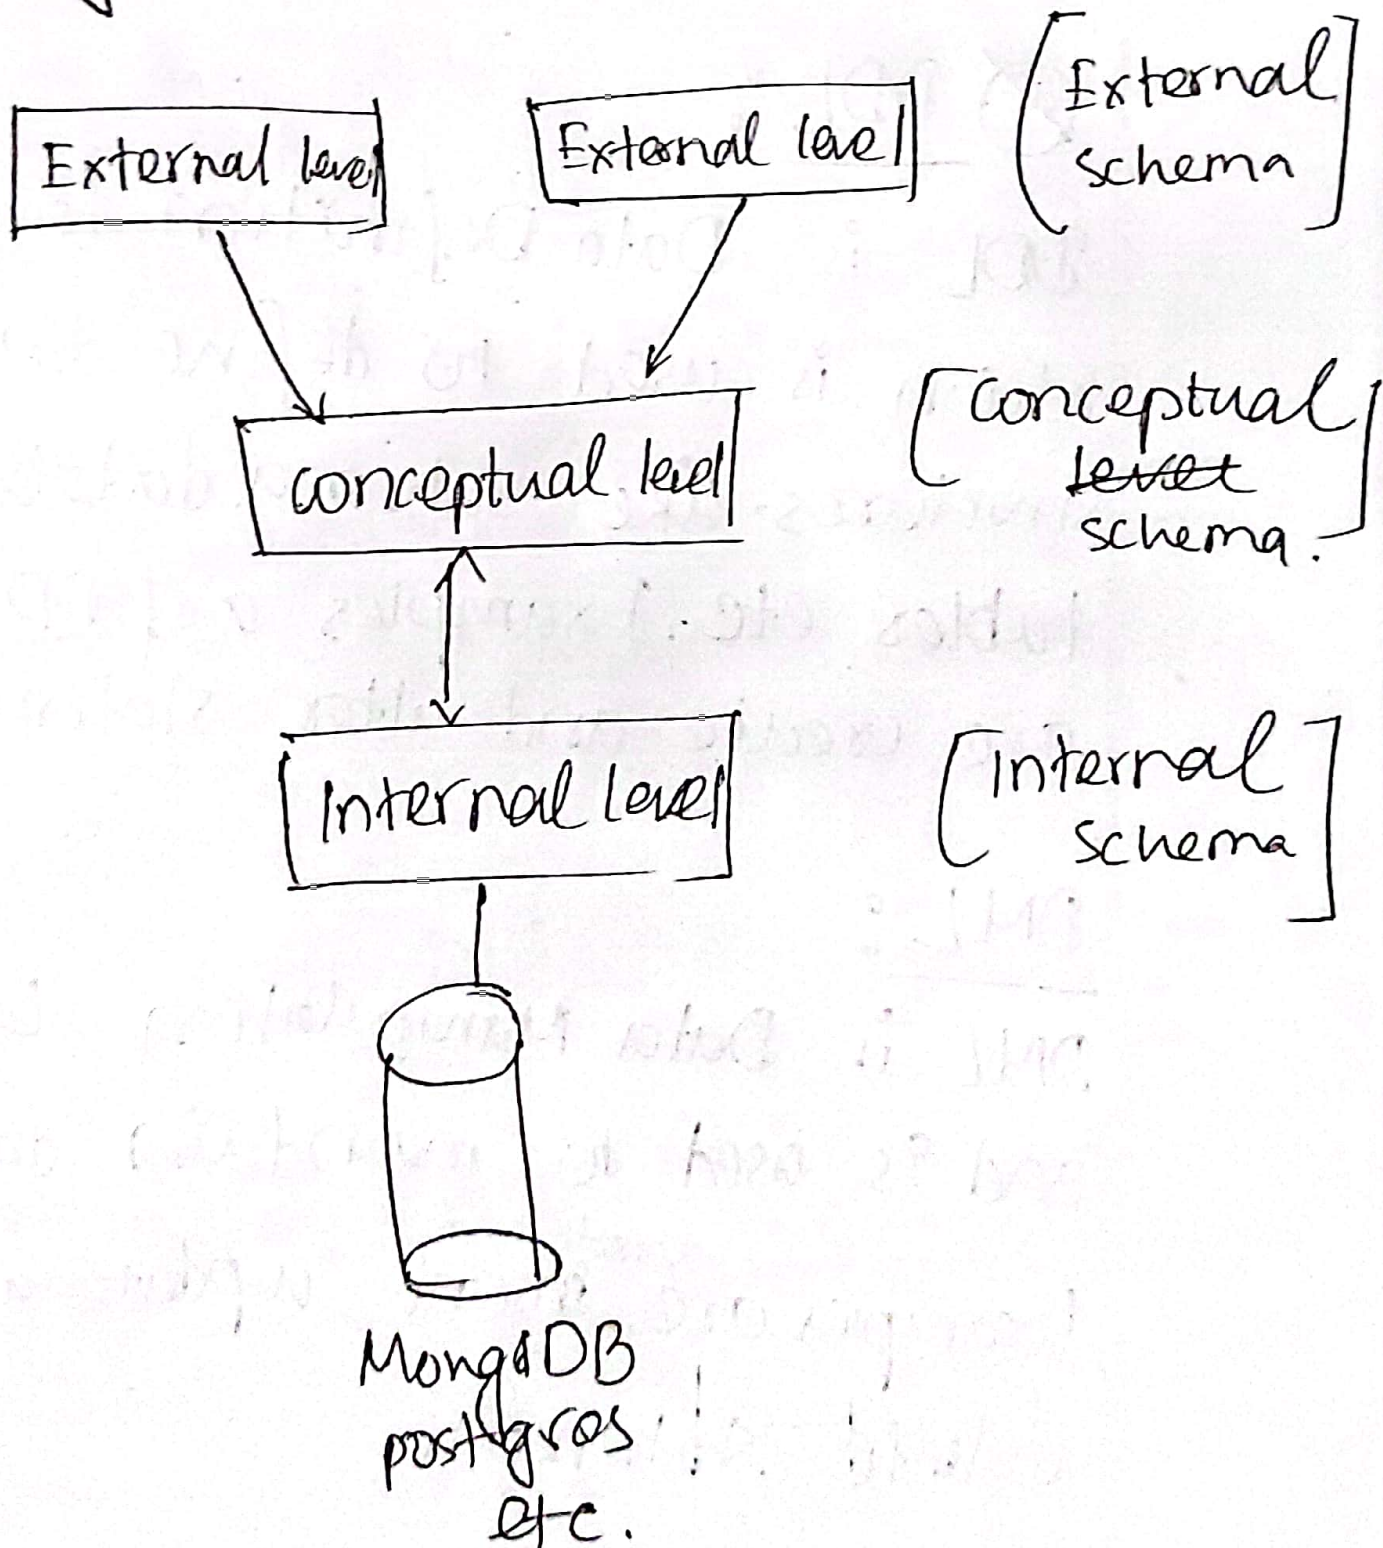 External level
External level
[External
schema]
conceptual level
[conceptual
level
schema.]
Internal level
[Internal
schema]
MongoDB
postgros
etc.